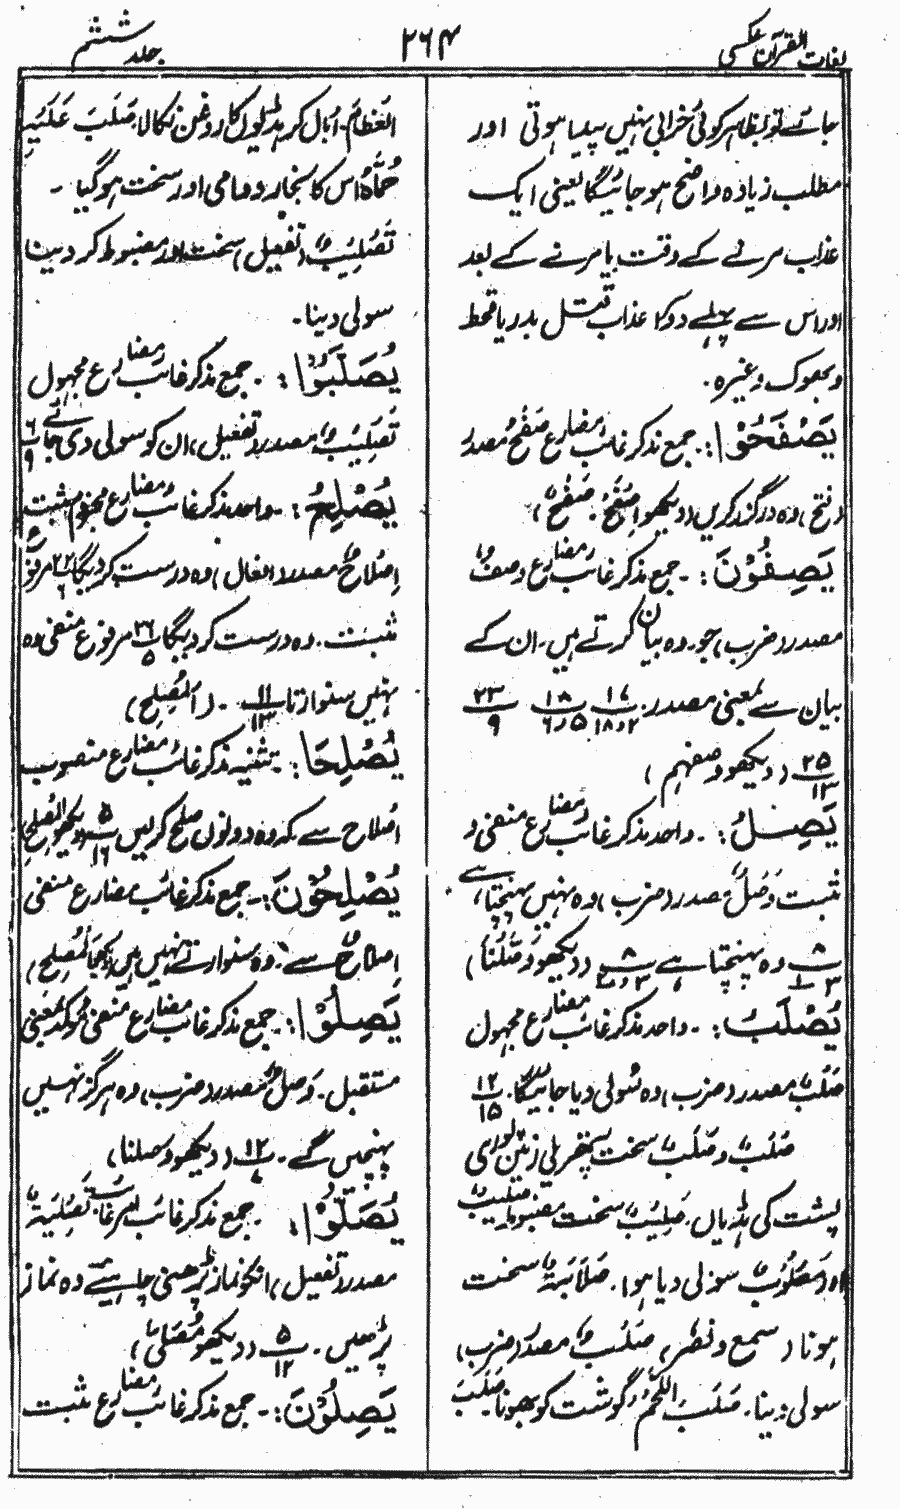 لغات القرآن عکسی
۲۶۴
جلد ششم
جائے تو بظاہر کوئی خرابی نہیں پیدا ہوتی اور
مطلب زیادہ واضح ہو جائیگا یعنی ایک
عذاب مرنے کے وقت یا مرنے کے بعد
اور اس سے پہلے دوکا عذاب قتل بدر یا قحط
و بھوک وغیرہ.
يَصْفَحُوْا: جمع مذکر غائب مضارع صَفْحٌ مصدر
(فتح) وہ درگزر کریں (دیکھو اِصْفَحْ. صَفْحٌ)
يَصِفُوْنَ: جمع مذکر غائب مضارع وصفٌ
مصدر (ضرب) جو. وہ بیان کرتے ہیں. ان کے
بیان سے بمعنی مصدر. ۱۷ ۲ و۱۸ ۱۸ ۵ و۶ ۲۳ ۹
۲۵ ۱۳ (دیکھو وصفهم)
يَصِلُ: واحد مذکر غائب مضارع منفی و
مثبت وَصْلٌ مصدر (ضرب) وہ نہیں پہنچتا،
۸ ۳ وہ پہنچتا ہے ۸ ۳ (دیکھو وَصَّلْنَا)
يُصْلَبُ: واحد مذکر غائب مضارع مجہول
صَلْبٌ مصدر (ضرب) وہ سُولی دیا جائیگا. ۱۲ ۱۵
صُلْبٌ و صَلَبٌ سخت پتھریلی زمین پوری
پشت کی ہڈیاں. صَلِیْبٌ سخت مضبوط صلیب
اور مَصْلُوْبٌ سولی دیا ہوا. صَلَابَةٌ سخت
ہونا (سمع و نصر) صَلْبٌ مصدر (ضرب)
سولی دینا. صَلَبَ اللَّحْمَ گوشت کو بھونا صَلَبَ
العِظَامَ. اُبال کر ہڈیوں کا روغن نکالا. صَلَبَ عَلَیْہِ
حُمَّاہُ اس کا بخار دوامی اور سخت ہوگیا۔
تَصْلِیْبٌ (تفعیل) سخت اور مضبوط کر دینا
سولی دینا.
يُصَلَّبُوْا: جمع مذکر غائب مضارع مجہول
تَصْلِیْبٌ مصدر (تفعیل) ان کو سولی دی جائے ۶ ۹
يُصْلِحُ: واحد مذکر غائب مضارع مجزوم مثبت
اِصْلَاحٌ مصدر (افعال) وہ درست کر دیگا ۲۲ ۶ مرفوع
مثبت. وہ درست کر دیگا ۲۶ ۵ مرفوع منفی وہ
نہیں سنوارتا ۱۱ ۱۳. (المُصْلِح)
يُصْلِحَا: تثنیہ مذکر غائب مضارع منصوب
اصلاح سے کہ وہ دونوں صلح کر لیں ۵ ۱۶ (دیکھو الصلح)
يُصْلِحُوْنَ: جمع مذکر غائب مضارع منفی
اِصلاحٌ سے. وہ سنوارتے نہیں ہیں (دیکھو المُصلح)
يَصِلُوْا: جمع مذکر غائب مضارع منفی مؤکد بمعنی
مستقبل. وَصْلٌ مصدر (ضرب) وہ ہرگز نہیں
پہنچیں گے. ۱۲ ۷ (دیکھو وصلنا)
يُصَلُّوْا: جمع مذکر غائب تَصْلِیَةٌ
مصدر (تفعیل) انکو نماز پڑھنی چاہیے وہ نماز
پڑھیں. ۵ ۱۲ (دیکھو مُصَلًّی)
يَصِلُوْنَ: جمع مذکر غائب مضارع مثبت